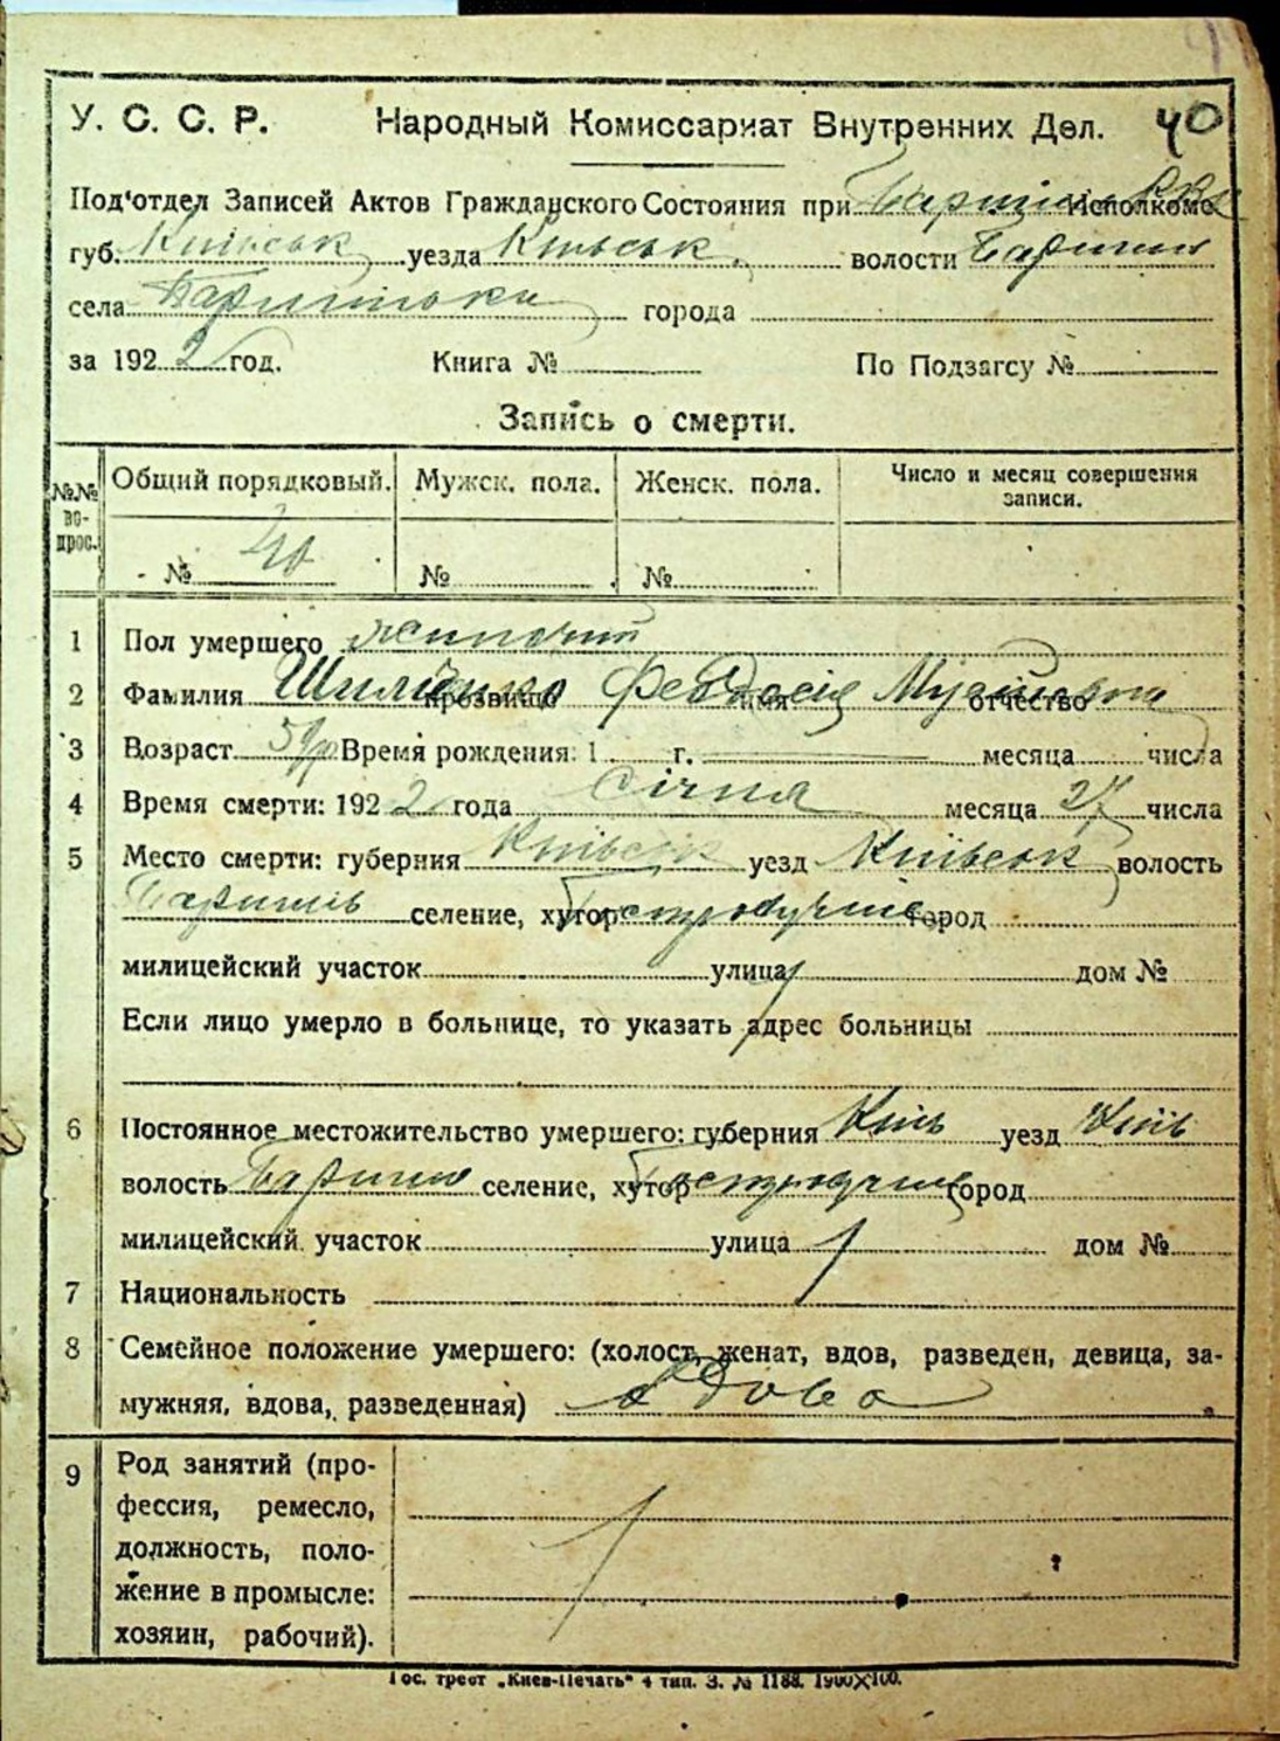 У. С. С. Р. Народный Комиссариат Внутренних Дел. 40
Под'отдел Записей Актов Гражданского Состояния при Исполкоме
губ. Київськ уезда Київськ. волости Баришів
села Баришівки города
за 1922 год. Книга № По Подзагсу №
Запись о смерти.
№№ вопрос. Общий порядковый. Мужск. пола. Женск. пола. Число и месяц совершения записи.
№ 40 № №
1 Пол умершего жиночий
2 Фамилия прозвище Феодосія имя отчество
3 Возраст Время рождения: 1 г. месяца числа
4 Время смерти: 1922 года Січня месяца 27 числа
5 Место смерти: губерния Київськ уезд Київськ волость
Баришів селение, хутор город
милицейский участок улица дом №
Если лицо умерло в больнице, то указать адрес больницы
6 Постоянное местожительство умершего: губерния Київ уезд Київ
волость Баришів селение, хутор город
милицейский участок улица дом №
7 Национальность
8 Семейное положение умершего: (холост, женат, вдов, разведен, девица, за-
мужняя, вдова, разведенная) вдова
9 Род занятий (про-
фессия, ремесло,
должность, поло-
жение в промысле:
хозяин, рабочий).
Гос. трест „Киев-Печать" 4 тип. З. № 1188. 1900X100.